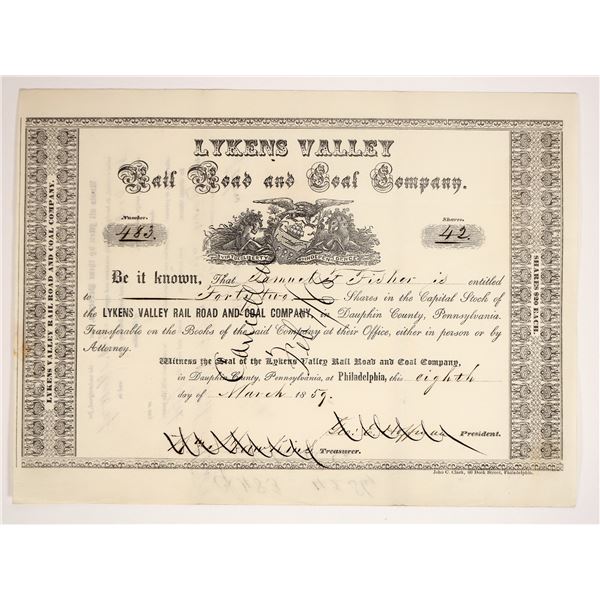 LYKENS VALLEY
Rail Road and Coal Company.
Number. Shares.
483. 42.
VIRTUE LIBERTY INDEPENDENCE
Be it known, That Samuel Fisher is entitled
to Forty two Shares in the Capital Stock of
the LYKENS VALLEY RAIL ROAD AND COAL COMPANY, in Dauphin County, Pennsylvania.
Transferable on the Books of the said Company at their Office, either in person or by
Attorney.
Witness the Seal of the Lykens Valley Rail Road and Coal Company,
in Dauphin County, Pennsylvania, at Philadelphia, this eighth
day of March 1859.
President.
Treasurer.
Cancelled
LYKENS VALLEY RAIL ROAD AND COAL COMPANY.
SHARES $20 EACH.
John C. Clark, 60 Dock Street, Philadelphia.